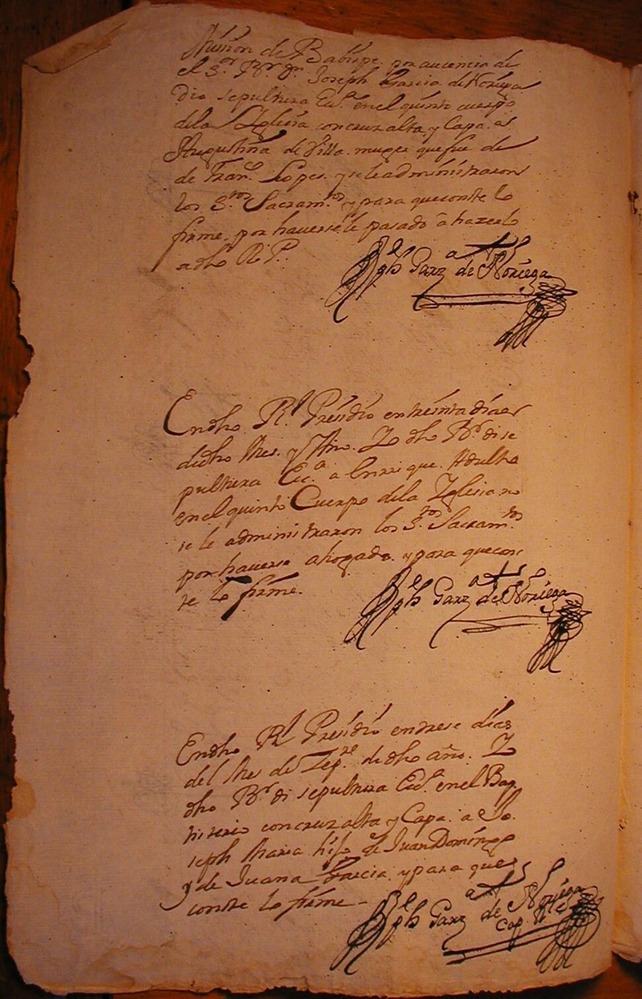 Mision de Babispe, por aucencia de
el S.or B.r D.n Joseph Garcia de Noriega
dio sepultura Ecc.a en el quinto cuerpo
dela Yglesia con cruz alta y Capa. á
Augustina de Villa. muger que fue de
de Fran.co Lopes. y se le administraron
los S.tos Sacram.tos y para que conste lo
firme. por haverse le pasado â hazerlo
adho R. P.
Jph Garz.a de Noriega
En dho R.l Presidio en treinta dias
de dho Mes. y Año. Yo dho B.r di se
pultura Ec.a a Enrrique. Adulto
en el quinto Cuerpo dela Yglesia no
se le administraron los S.tos Sacram.tos
por haverse ahogado. y para que cons
te lo firme.
Jph Garz.a de Noriega
En dho R.l Presidio en trese dias
del Mes de Sep.re de dho año. Yo
dho B.r di sepultura Ecc. en el Bap
tisterio con cruz alta y Capa. a Jo
seph Maria hijo de Juan Domingo
y de Juana Garcia. y para que
conste lo firme
Jph Garz.a de Noriega
Cap.n